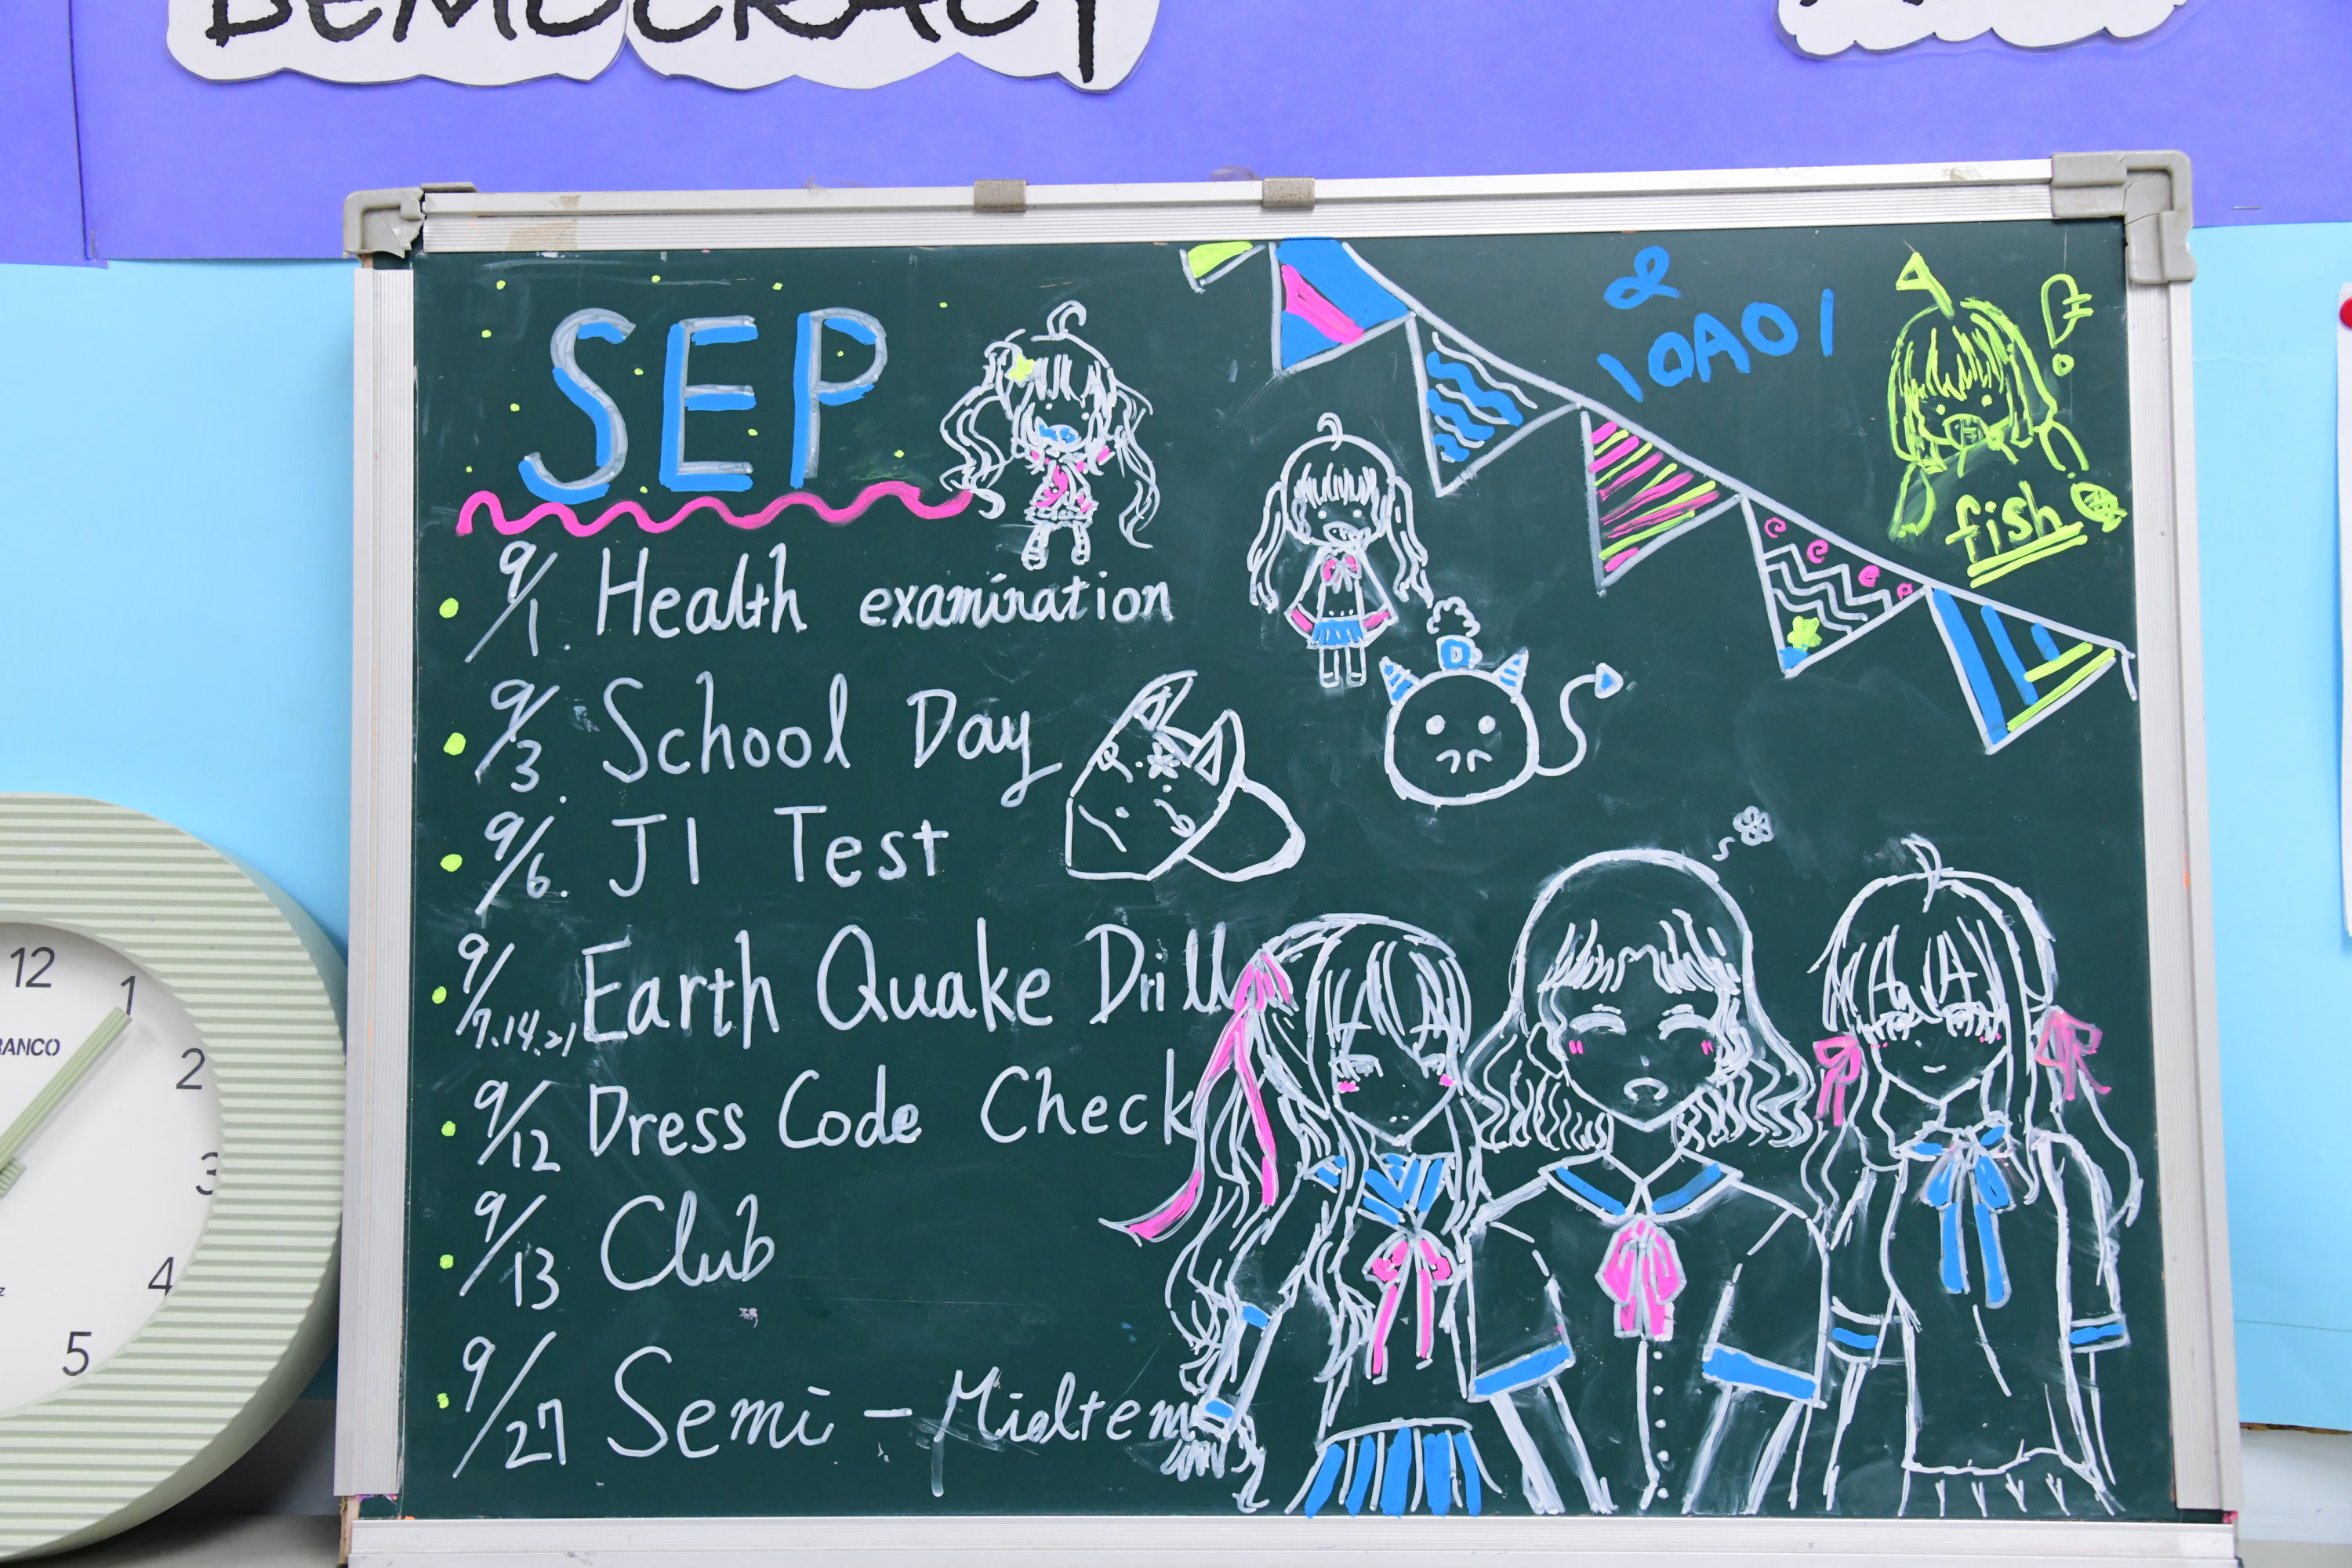 DEMOCRACY
SEP
10A01
fish
9/1. Health examination
9/3. School Day
9/6. J1 Test
9/7.14.21 Earth Quake Drill
9/12 Dress Code Check
9/13 Club
9/27 Semi-Midterm
12
1
2
3
4
5